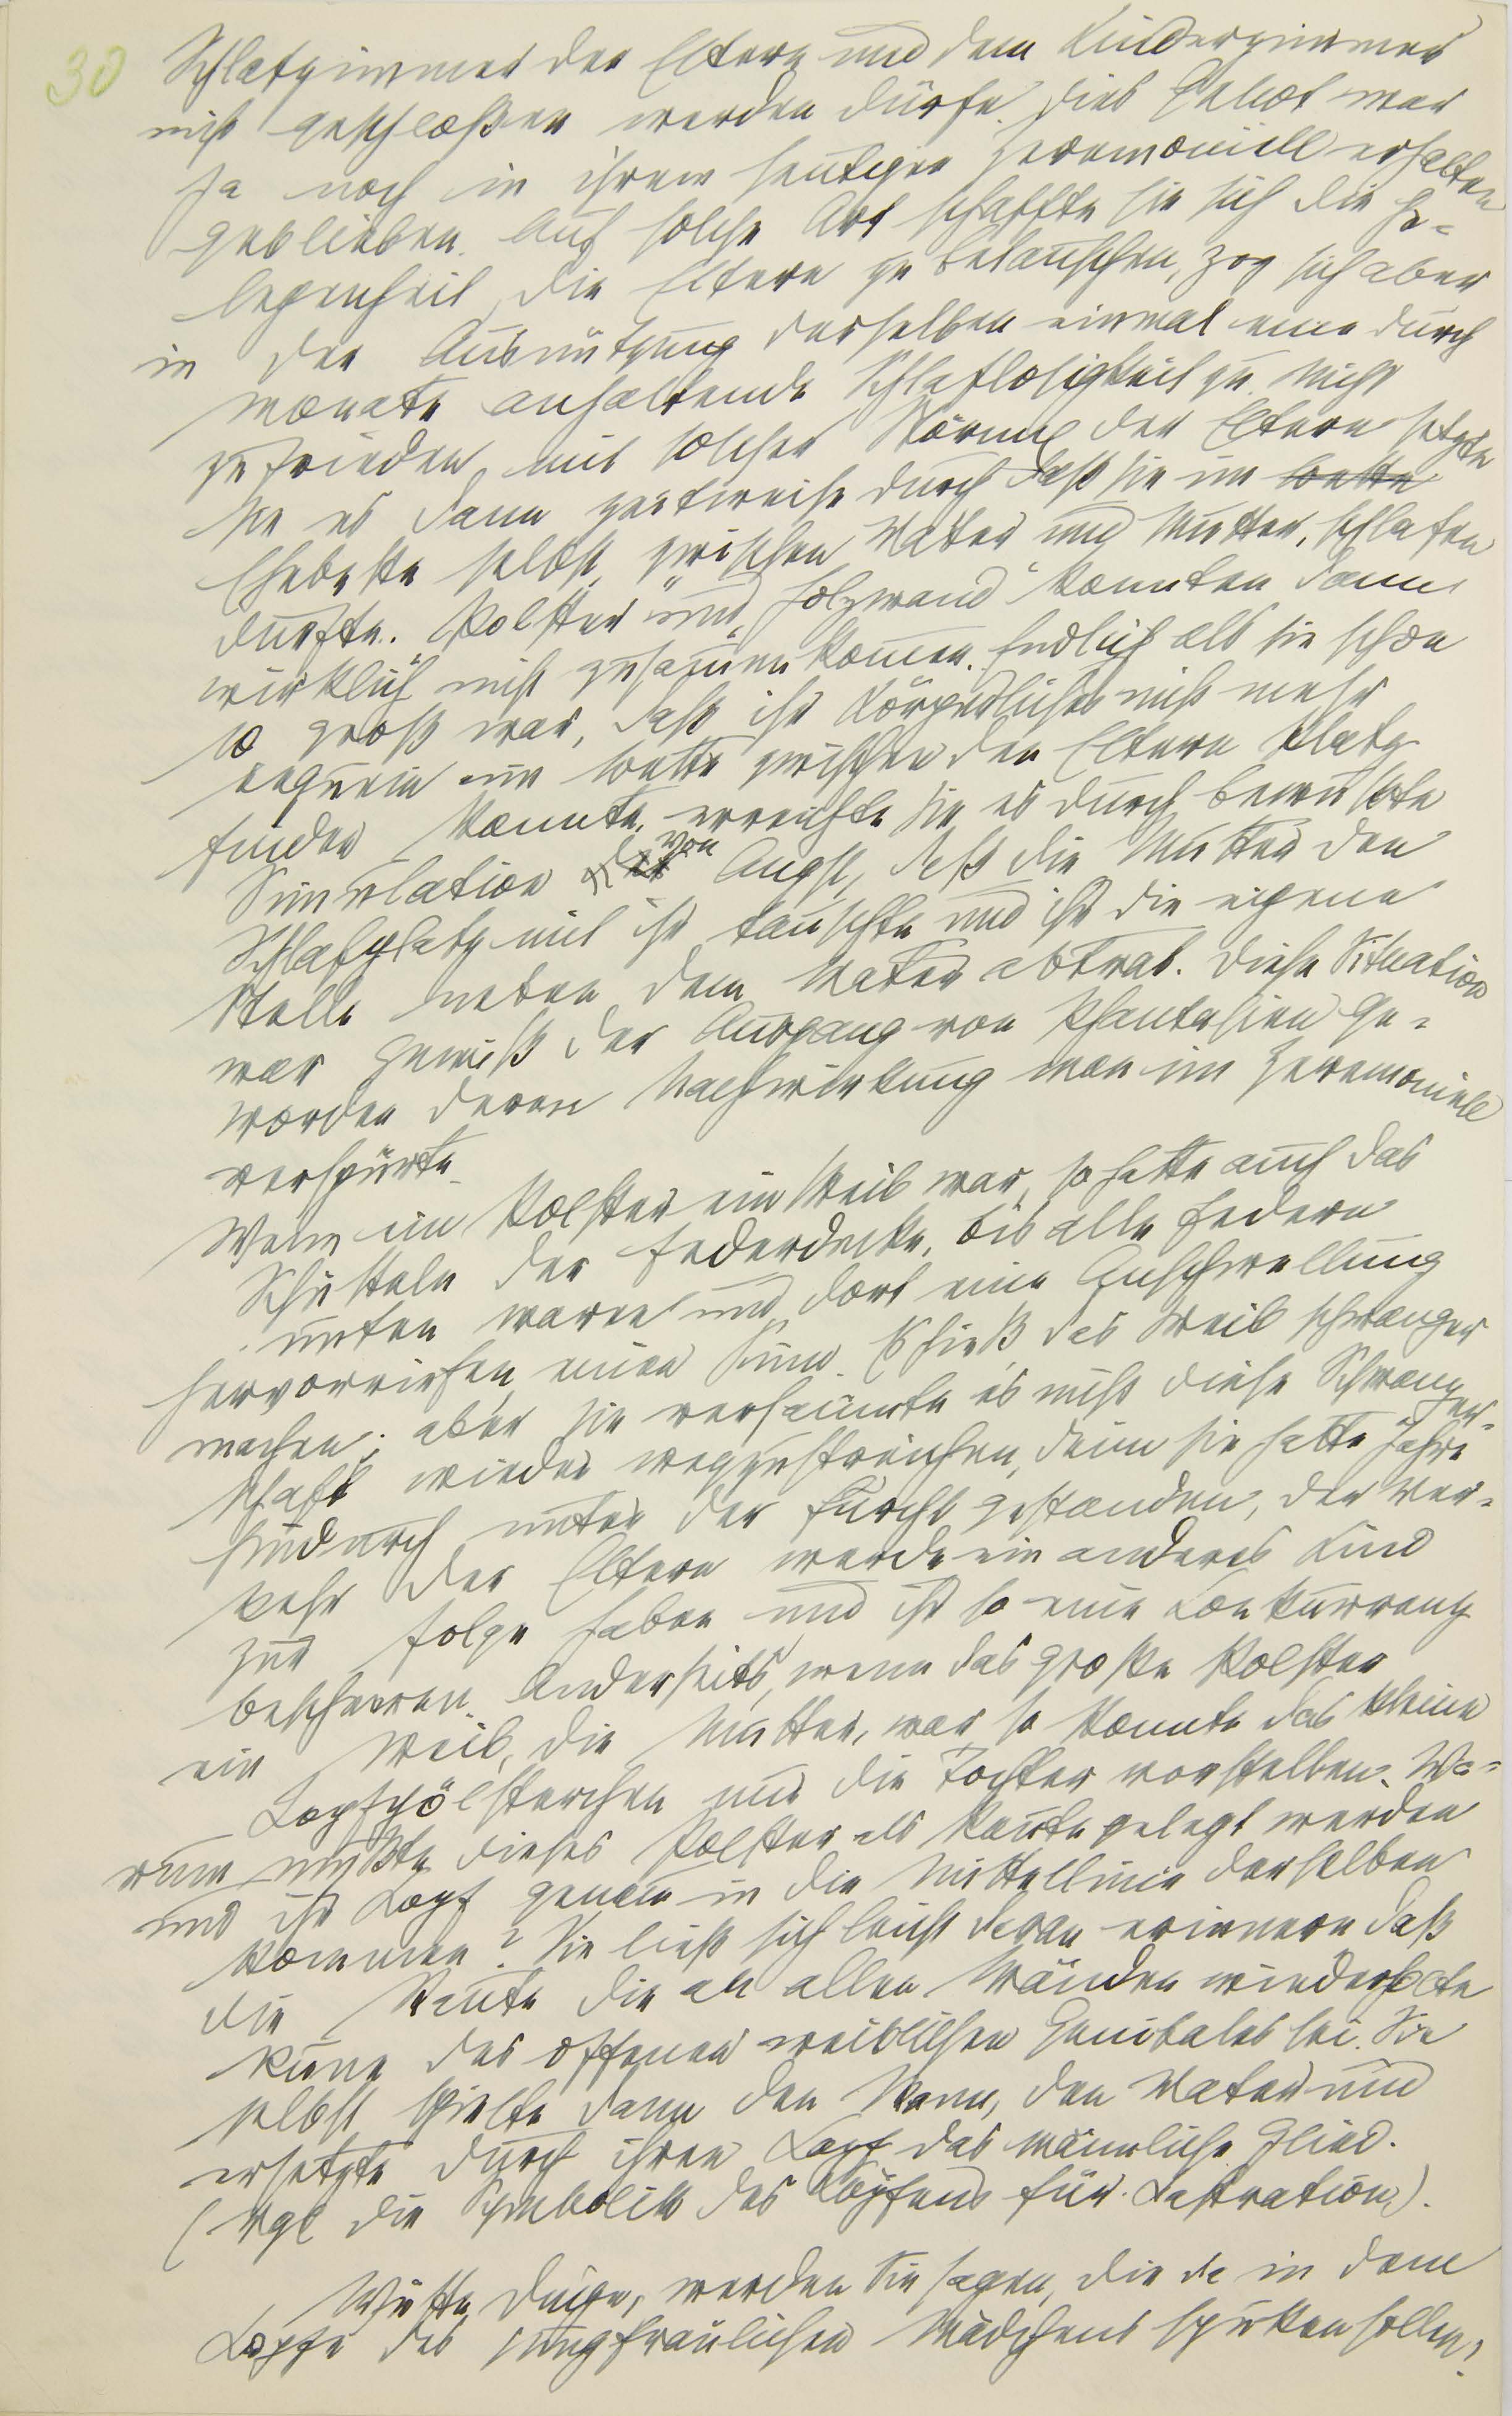 30
Schlafzimmer der Eltern und dem Kinderzimmer
nicht geschloßen werden dürfe. Dies Gebot war
ja noch in ihrem heutigen Zeremoniell erhalten
geblieben. Auf solche Art schaffte sie sich die Ge-
legenheit, die Eltern zu belauschen, zog sich aber
in der Ausnützung derselben einmal eine durch
Monate anhaltende Schlaflosigkeit zu. Nicht
zufrieden mit solcher Störung der Eltern setzte
sie es dann zeitweise durch daß sie im Bette
Ehebette selbst zwischen Vater und Mutter, schlafen
durfte. „Polster“ und „Holzwand“ konnten dann
wirklich nicht zusammenkommen. Endlich als sie schon
so groß war, daß ihr Körperliches nicht mehr
bequem im Bette zwischen den Eltern Platz
finden konnte, erreichte sie es durch bewußte
Simulation von Angst, daß die Mutter den
Schlafplatz mit ihr tauschte und ihr die eigene
Stelle neben dem Vater abtrat. Diese Situation
war gewiß der Ausgang von Phantasien ge-
worden deren Nachwirkung man im Zeremoniell
verspürte.
Wenn ein Polster ein Weib war, so hatte auch das
Schütteln der Federdecke, bis alle Federn
unten waren und dort eine Anschwellung
hervorriefen, einen Sinn. Es hieß das Weib schwanger
machen; aber sie versäumte es nicht diese Schwanger-
schaft wieder wegzustreichen, denn sie hatte Jahre
hindurch unter der Furcht gestanden, der Ver-
kehr der Eltern werde ein anderes Kind
zur Folge haben und ihr so eine Konkurrenz
bescheeren. Anderseits, wenn das große Polster
ein Weib, die Mutter, war, so konnte das kleine
Kopfpölsterchen nur die Tochter vorstellen. Wa-
rum mußte dieses Polster als Raute gelegt werden
und ihr Kopf genau in die Mittellinie derselben
kommen? Sie ließ sich leicht daran erinnern daß
die Raute die an allen Wänden wiederholte
Rune des offenen weiblichen Genitales sei. Sie
selbst spielte dann den Mann, den Vater und
ersetzte durch ihren Kopf das männliche Glied.
(Vgl die Symbolik des Köpfens für Kastration).
Wüste Dinge, werden Sie sagen, die da in dem
Kopfe des jungfräulichen Mädchens spuken sollen.